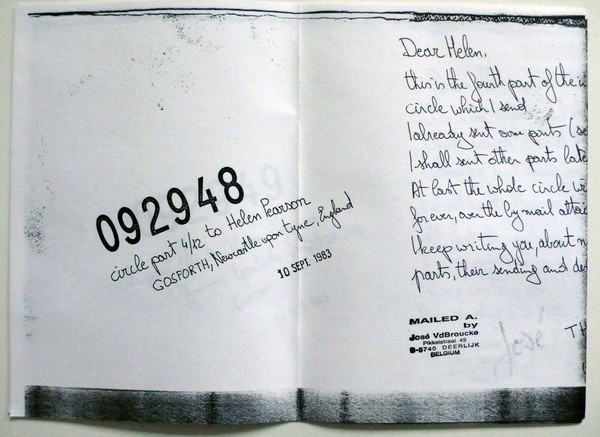 092948
circle part 4/12 to Helen Pearson
GOSFORTH, Newcastle upon Tyne, England
10 SEPT. 1983
Dear Helen,
this is the fourth part of the
circle which I send
I already sent some parts (se
I shall sent other parts late
At last the whole circle
forever, over the by mail
I keep writing you, about
parts, their sending and
MAILED A.
by
José VdBroucke
Pikkelstraat 49
B-8740 DEERLIJK
BELGIUM
José
TH